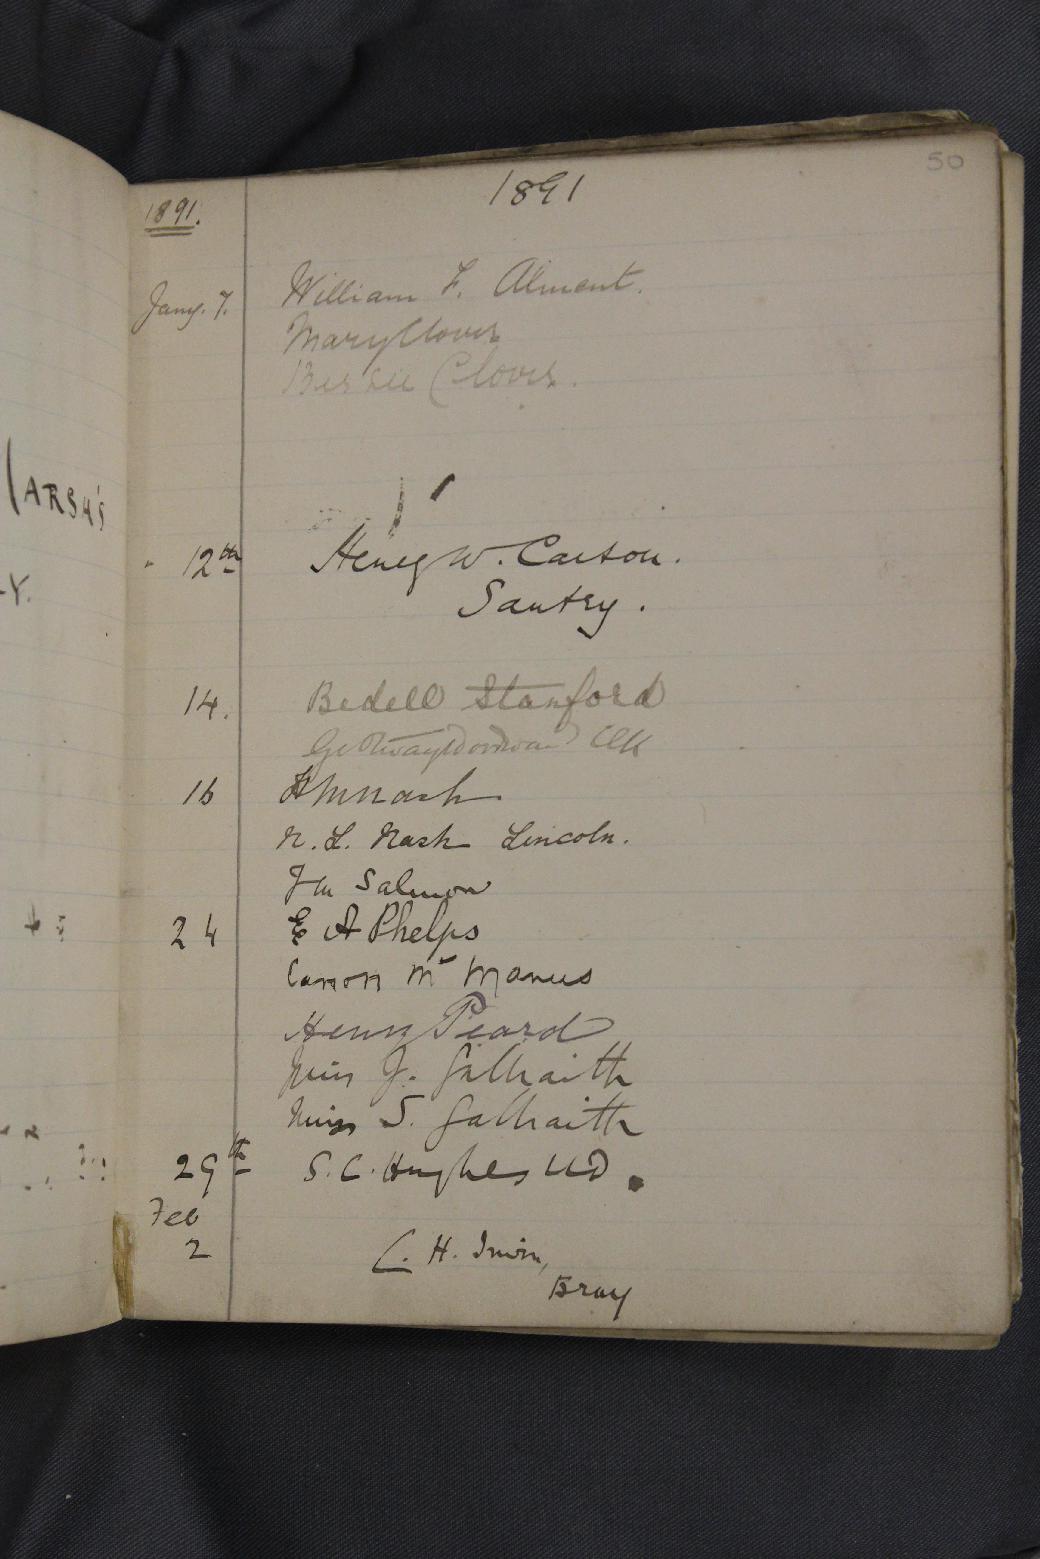 50
1891
1891.
Jany. 7. William F. Alment.
Mary Clover
Bessie Clover.
12th Henry W. Carson.
Santry.
14. Bedell Stanford
16
N. L. Nash Lincoln.
Salmon
24 E A Phelps
Canon Mc Manus
Henry Peard
Miss J. Galbraith
Miss S. Galbraith
29th S. C. Hughes LLD.
Feb
2 C. H. Irwin,
Bray
MARSH'S
Y.